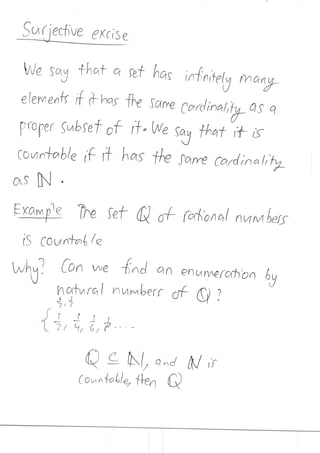 Surjective excise
We say that a set has infinitely many
elements if it has the same cardinality as a
proper subset of it. We say that it is
countable if it has the same cardinality
as ℕ.
Example The set ℚ of rational numbers
is countable
Why? Can we find an enumeration by
natural numbers of ℚ?
{ 1/2, 1/4, 1/6, 1/8 ....
ℚ ⊆ ℕ, and ℕ is
countable, then ℚ